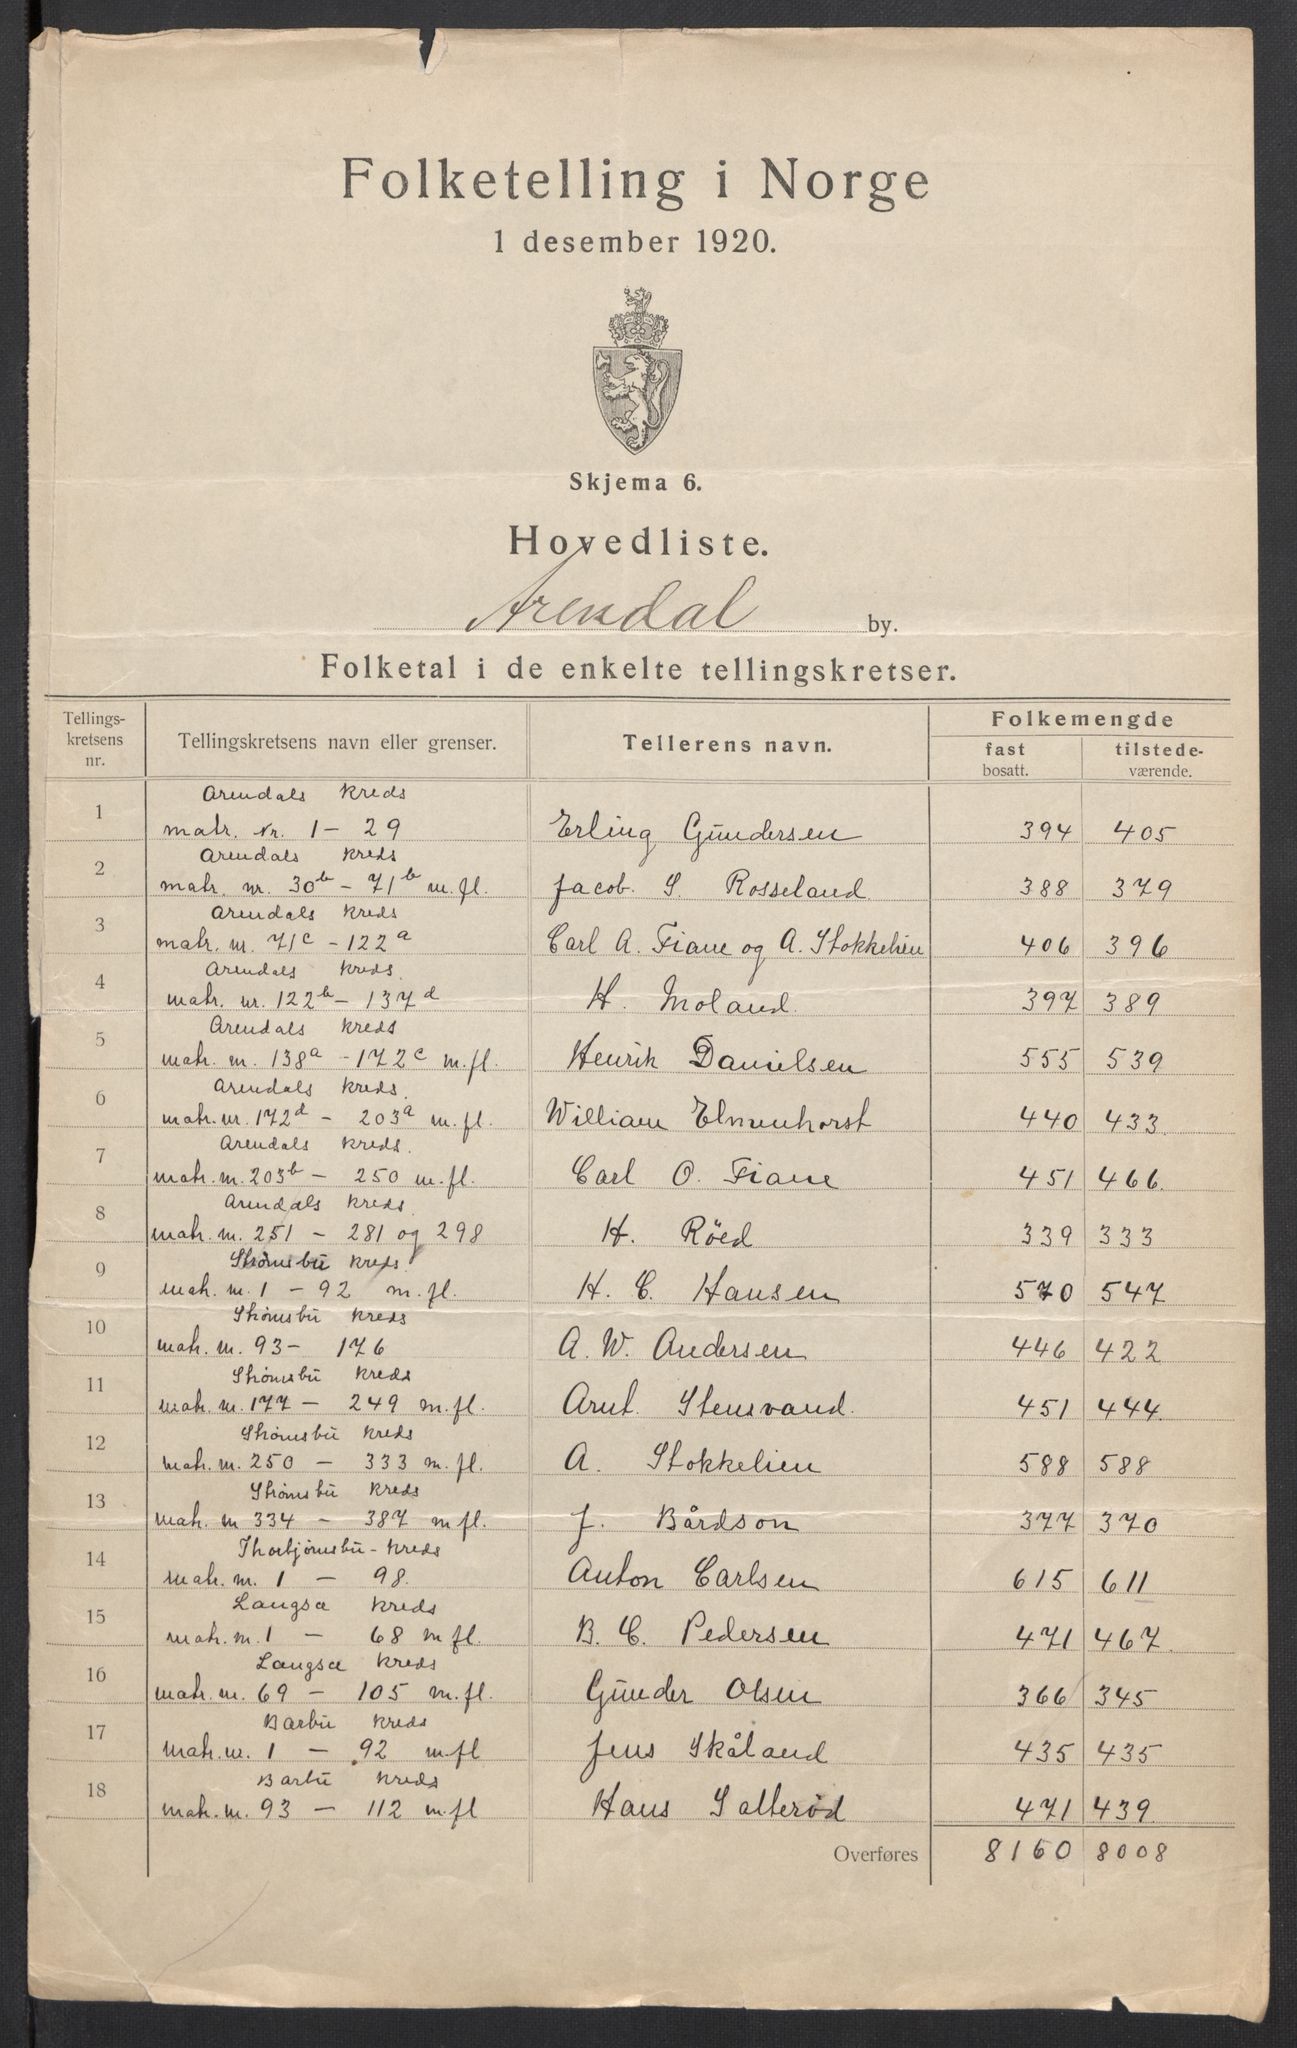 Folketelling i Norge
1 desember 1920.
Skjema 6.
Hovedliste.
Arendal by.
Folketal i de enkelte tellingskretser.
Tellings-kretsens nr. Tellingskretsens navn eller grenser. Tellerens navn. Folkemengde
fast bosatt. tilstede-værende.
Arendals Kreds
1 matr. Nr. 1 - 29 Erling Gundersen 394 405
Arendals Kreds
2 matr. nr. 30b - 71b m.fl. Jacob S. Rosseland 388 379
Arendals Kreds
3 matr. nr. 71c - 122a Carl A. Fiane og A. Stokkelien 406 396
Arendals Kreds.
4 matr. nr. 122b - 137d H. Moland. 397 389
Arendals Kreds
5 matr. nr. 138a - 172c m.fl. Henrik Danielsen 555 539
Arendals Kreds.
6 matr. nr. 172d - 203a m.fl. William Elmenhorst 440 433
Arendals Kreds.
7 matr. nr. 203b - 250 m.fl. Carl O. Fiane 451 466
Arendals Kreds.
8 matr. nr. 251 - 281 og 298 H. Røed 339 333
Strømsbu Kreds.
9 matr. nr. 1 - 92 m.fl. H. C. Hansen 570 547
Strømsbu Kreds
10 matr. nr. 93 - 176 A. W. Andersen 446 422
Strømsbu Kreds
11 matr. nr. 177 - 249 m.fl. Arnt. Stensvand. 451 444
Strømsbu Kreds
12 matr. nr. 250 - 333 m.fl. A. Stokkelien 588 588
Strømsbu Kreds
13 matr. nr. 334 - 387 m.fl. J. Bårdson 377 370
Thorbjørnsbu - Kreds
14 matr. nr. 1 - 98. Anton Carlsen 615 611
Langsæ Kreds
15 matr. nr. 1 - 68 m.fl. B. C. Pedersen 471 467
Langsæ Kreds
16 matr. nr. 69 - 105 m.fl. Gunder Olsen 366 345
Barbu Kreds
17 matr. nr. 1 - 92 m.fl Jens Skåland 435 435
Barbu Kreds
18 matr. nr. 93 - 112 m.fl Hans Salterød 471 439
Overføres 8160 8008